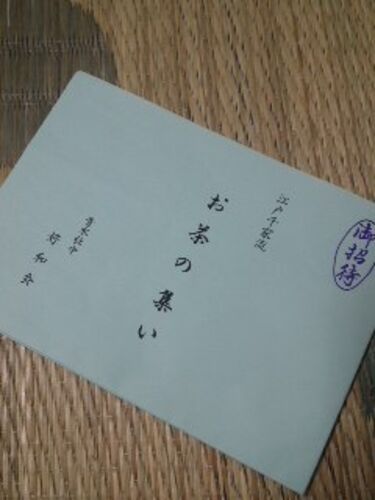 御招待
江戸千家流
お茶の集い
好和会